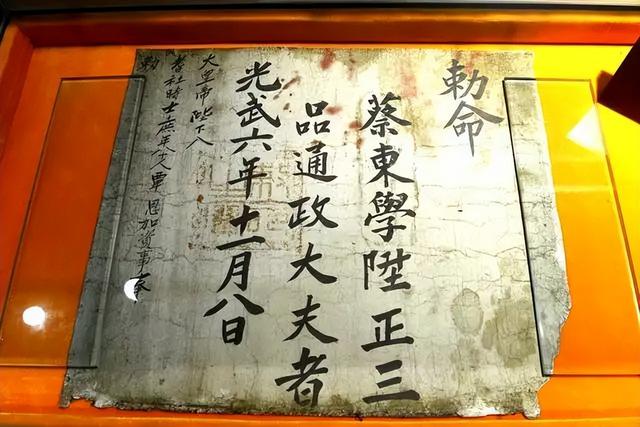 勅命
蔡東學陞正三
品通政大夫者
光武六年十一月八日
大皇帝陛下入
耆社時士庶年人覃恩加資事奉
勅